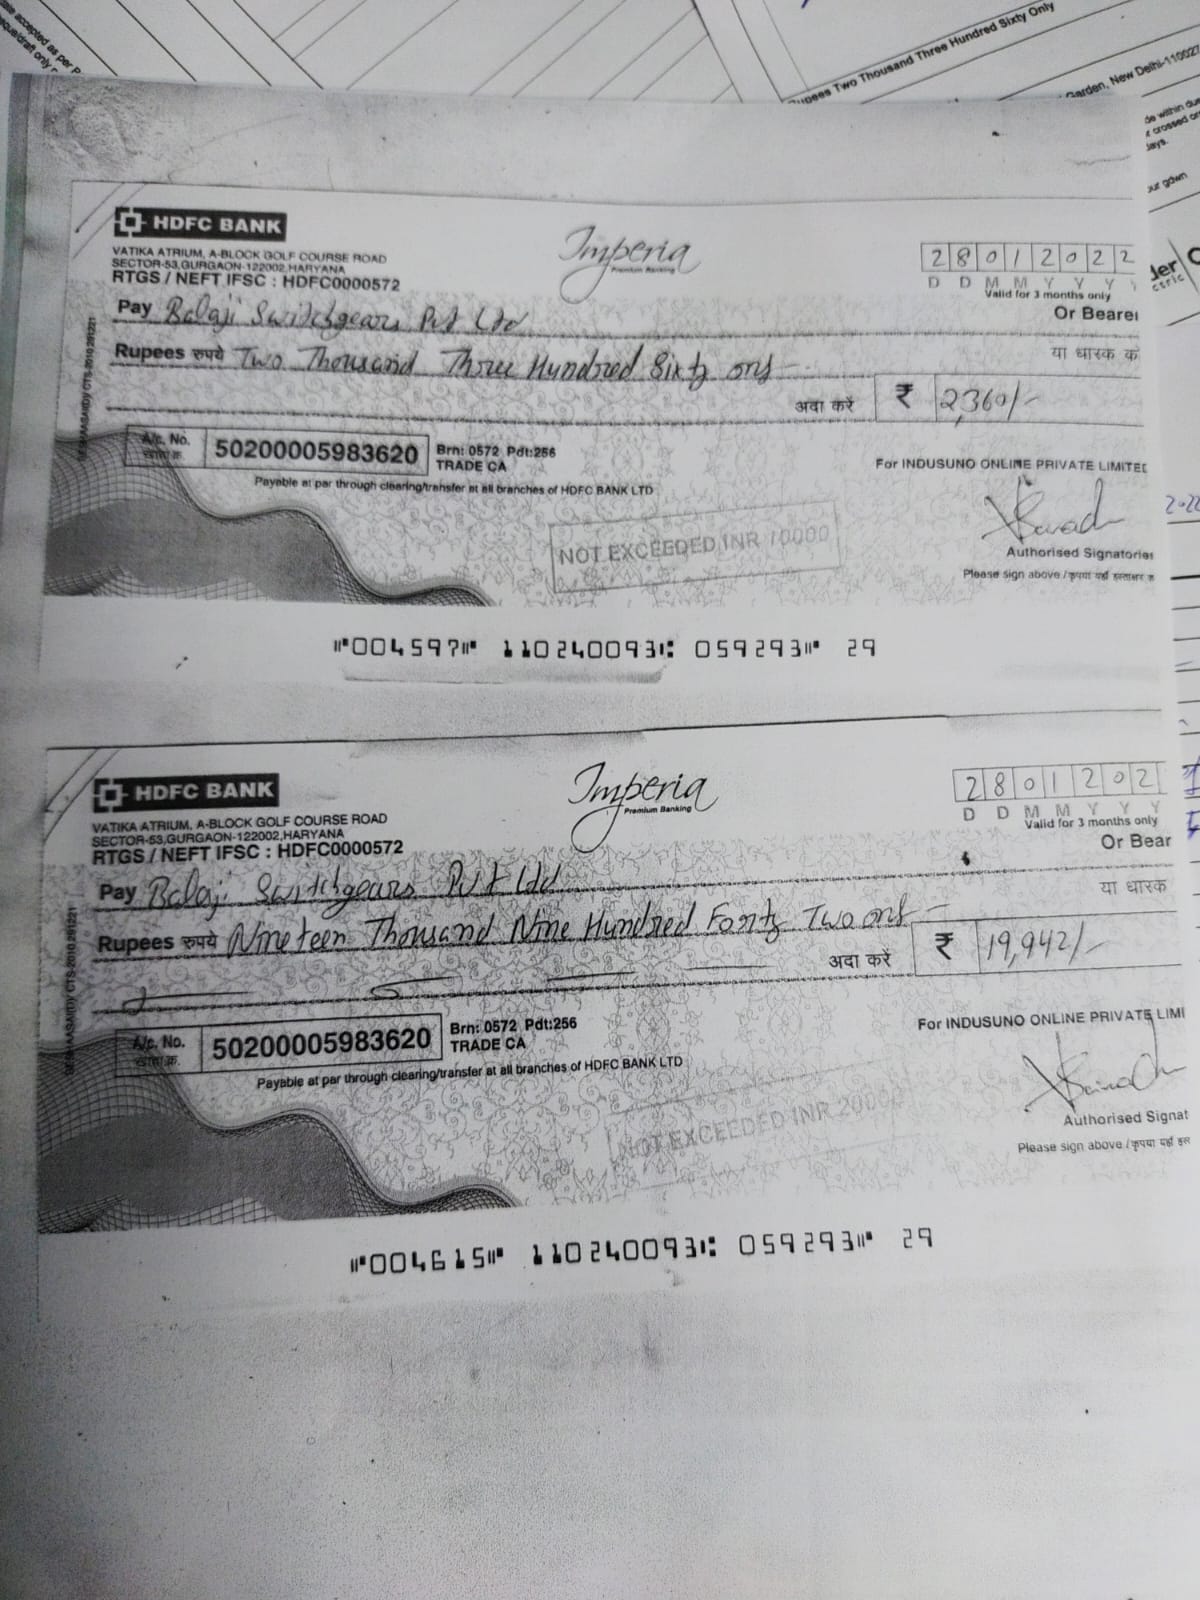 Rupees Two Thousand Three Hundred Sixty Only
Garden, New Delhi-110027
HDFC BANK
Imperia
Premium Banking
VATIKA ATRIUM, A-BLOCK GOLF COURSE ROAD
SECTOR-53,GURGAON-122002,HARYANA
RTGS / NEFT IFSC : HDFC0000572
28012022
D D M M Y Y Y
Valid for 3 months only
Pay Balaji Switchgears Pvt Ltd
Or Bearer
Rupees रुपये Two Thousand Three Hundred Sixty only
या धारक क
अदा करें ₹ 2,360/-
A/c. No. 50200005983620 Brn: 0572 Pdt:256
TRADE CA
Payable at par through clearing/transfer at all branches of HDFC BANK LTD
For INDUSUNO ONLINE PRIVATE LIMITED
NOT EXCEEDED INR 10000
Authorised Signatories
Please sign above / कृपया यहाँ हस्ताक्षर क
"004597" 110240093: 059293" 29
HDFC BANK
Imperia
Premium Banking
VATIKA ATRIUM, A-BLOCK GOLF COURSE ROAD
SECTOR-53,GURGAON-122002,HARYANA
RTGS / NEFT IFSC : HDFC0000572
2801202
D D M M Y Y Y
Valid for 3 months only
Pay Balaji Switchgears Pvt Ltd
Or Bear
Rupees रुपये Nineteen Thousand Nine Hundred Forty Two only
या धारक
अदा करें ₹ 19,942/-
A/c. No. 50200005983620 Brn: 0572 Pdt:256
TRADE CA
Payable at par through clearing/transfer at all branches of HDFC BANK LTD
For INDUSUNO ONLINE PRIVATE LIMI
NOT EXCEEDED INR 20000
Authorised Signat
Please sign above / कृपया यहाँ हस
"004615" 110240093: 059293" 29